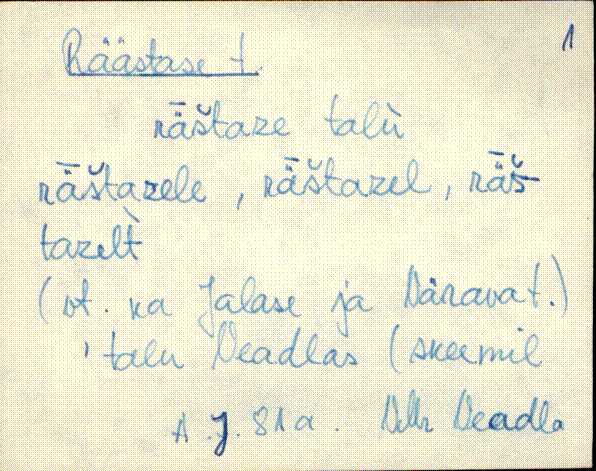 1
Räästase t.
rǟštaze talù
rǟštazele, rǟštazel, rǟš-
tazelt̀
(vt. ka Jalase ja Väravat.)
' talu Veadlas (skeemil
A.J. 81 a. Veadla